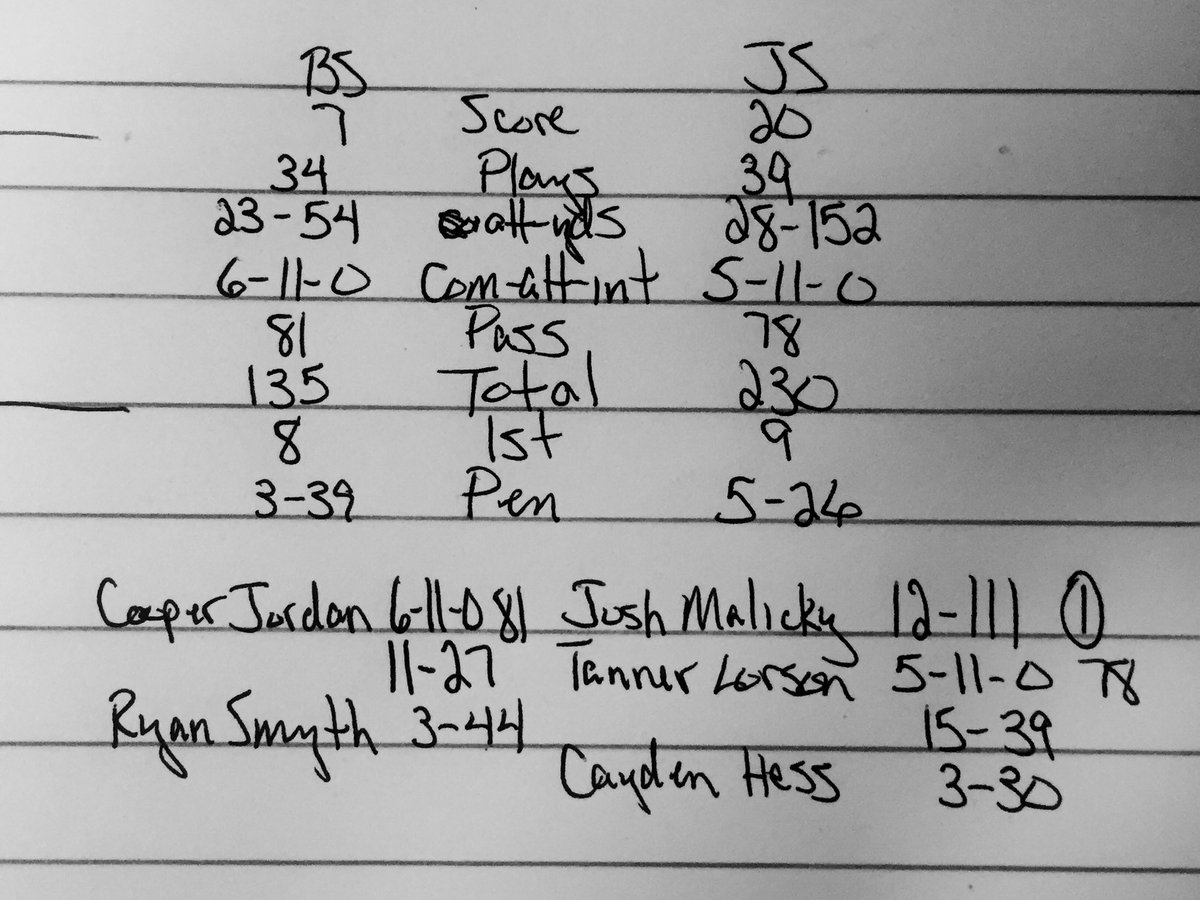 BS JS
7 Score 20
34 Plays 39
23-54 att-yds 28-152
6-11-0 Com-att-int 5-11-0
81 Pass 78
135 Total 230
8 1st 9
3-39 Pen 5-26
Cooper Jordan 6-11-0 81 Josh Malicky 12-111 ①
11-27 Tanner Lorson 5-11-0 78
Ryan Smyth 3-44 15-39
Cayden Hess 3-30